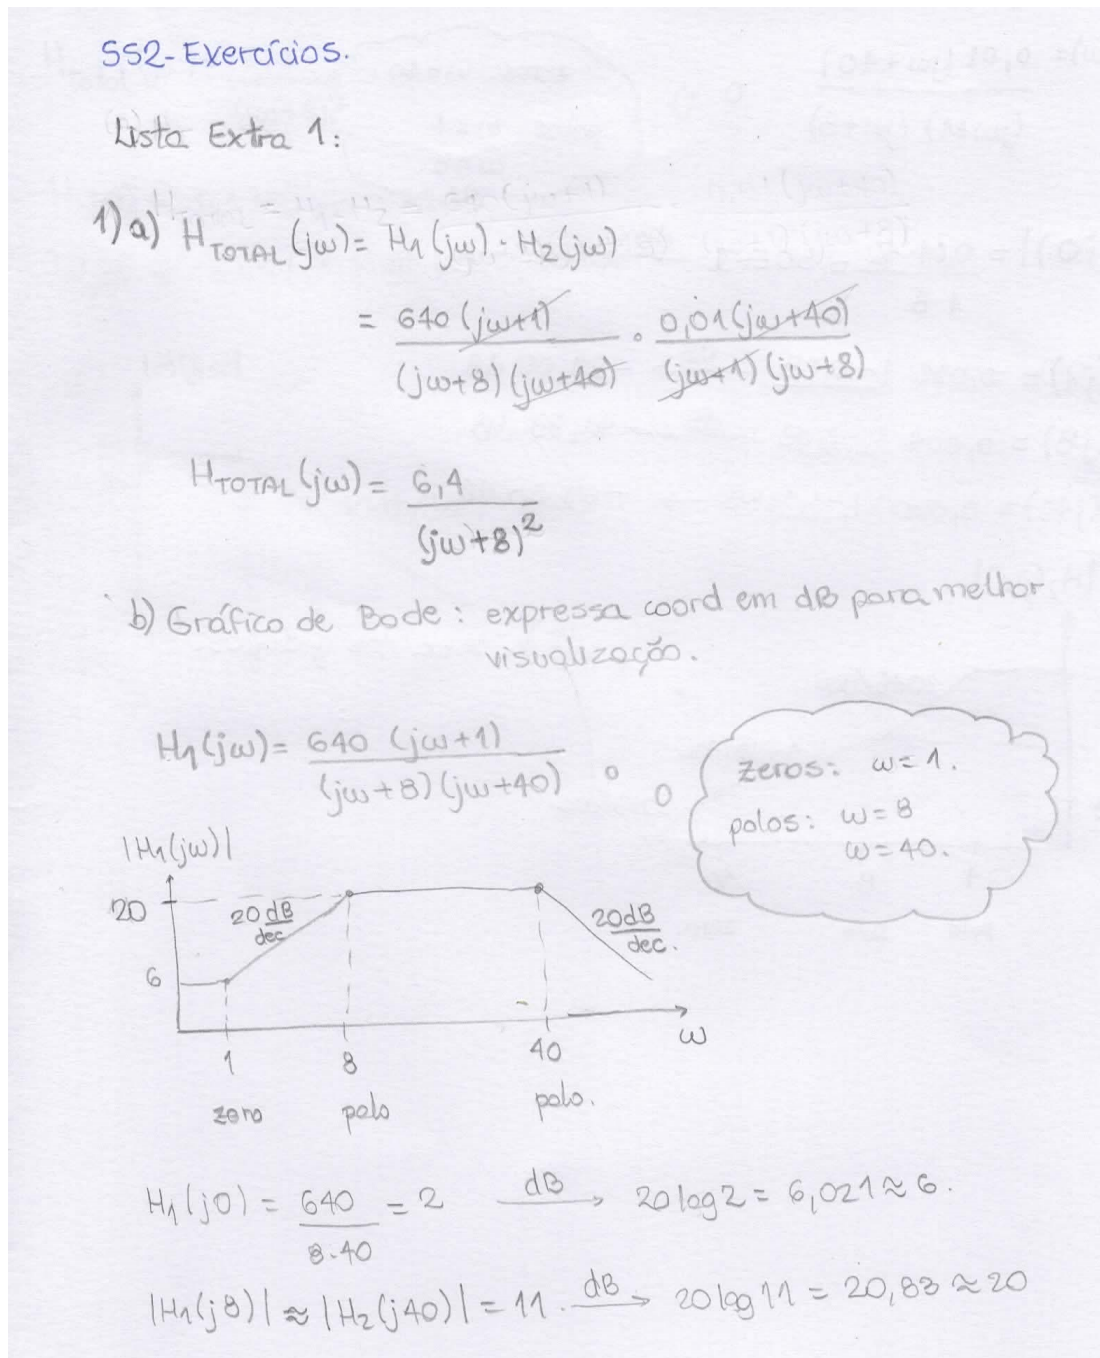 SS2-Exercícios.
Lista Extra 1:
1) a) H TOTAL (jω) = H1 (jω) · H2 (jω)
= 640 (jω+1) / (jω+8) (jω+40) · 0,01 (jω+40) / (jω+1) (jω+8)
H TOTAL (jω) = 6,4 / (jω+8)²
b) Gráfico de Bode : expressa coord em dB para melhor
visualização.
H1 (jω) = 640 (jω+1) / (jω+8) (jω+40)
zeros: ω = 1.
polos: ω = 8
ω = 40.
|H1 (jω)|
20
20 dB/dec
20dB/dec.
6
ω
1 8 40
zero polo polo.
H1 (j0) = 640 / 8.40 = 2 dB → 20 log 2 = 6,021 ≈ 6.
|H1 (j8)| ≈ |H2 (j40)| = 11. dB → 20 log 11 = 20,83 ≈ 20